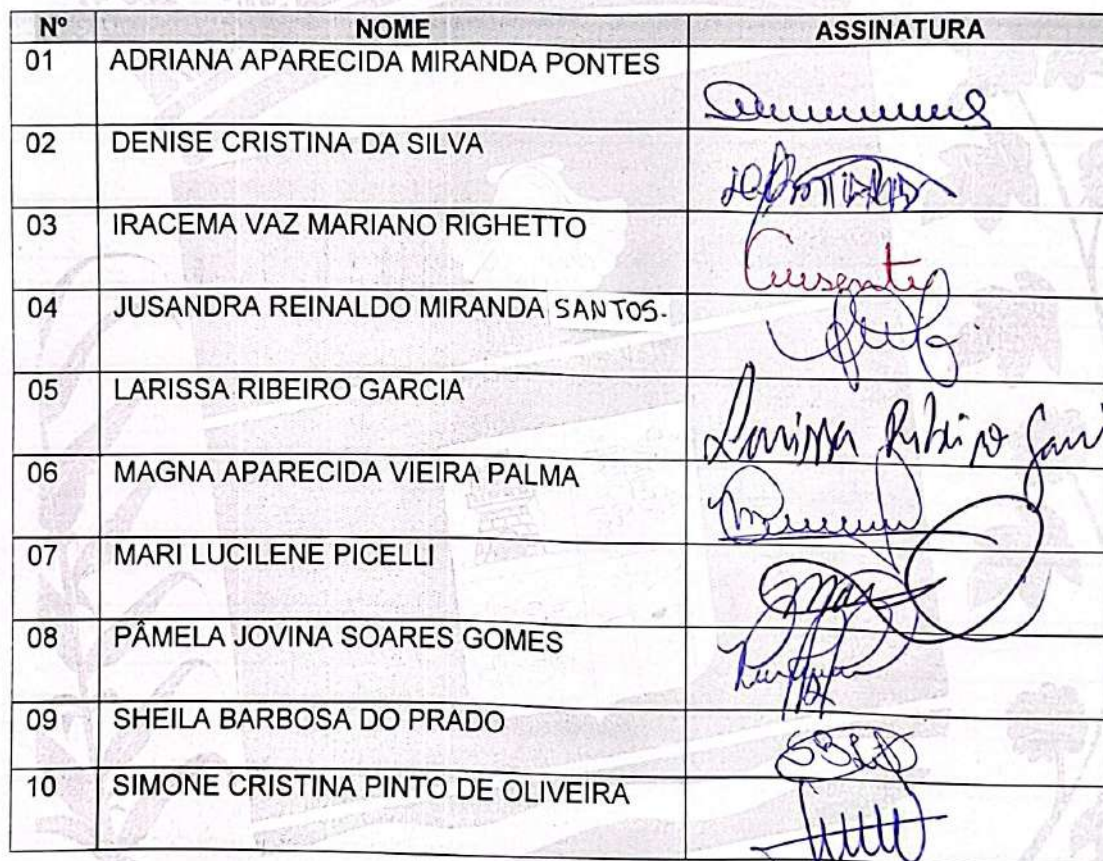 Nº NOME ASSINATURA
01 ADRIANA APARECIDA MIRANDA PONTES
02 DENISE CRISTINA DA SILVA
03 IRACEMA VAZ MARIANO RIGHETTO Ausente
04 JUSANDRA REINALDO MIRANDA SANTOS.
05 LARISSA RIBEIRO GARCIA Larissa Ribeiro Garci
06 MAGNA APARECIDA VIEIRA PALMA
07 MARI LUCILENE PICELLI
08 PÂMELA JOVINA SOARES GOMES
09 SHEILA BARBOSA DO PRADO
10 SIMONE CRISTINA PINTO DE OLIVEIRA